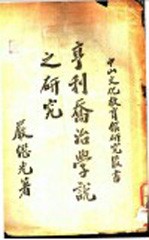 中山文化教育館研究叢書
亨利喬治學說
之研究
嚴繼光著